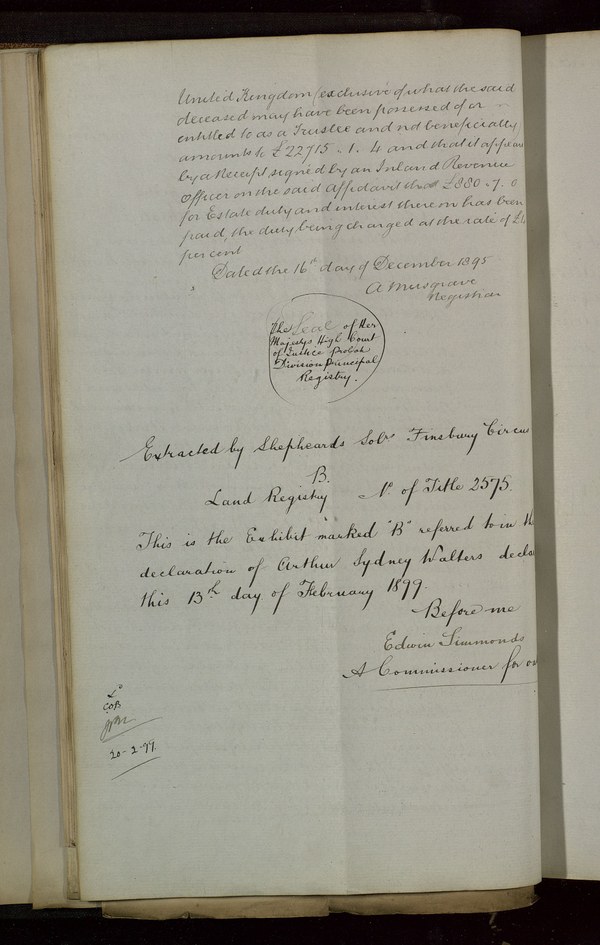 United Kingdom (exclusive of what the said
deceased may have been possessed of or
entitled to as a Trustee and not beneficially)
amounts to £22715 . 1 . 4 and that it appears
by a Receipt signed by an Inland Revenue
Officer on the said Affidavit that £880 . 7 . 0
for Estate duty and interest thereon has been
paid, the duty being charged at the rate of £4
per cent
Dated the 16th day of December 1895
A Musgrave
Registrar
The Seal of Her
Majestys High Court
of Justice Probate
Division Principal
Registry.
Extracted by Shepheards Solrs Finsbury Circus
B.
Land Registry No. of Title 2575.
This is the Exhibit marked "B" referred to in th
declaration of Arthur Sydney Walters decla
this 13th day of February 1899.
Before me
Edwin Simmonds
A Commissioner for oa
COB
20-2-99.